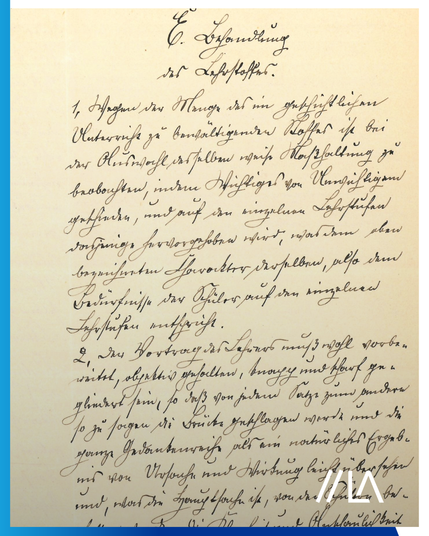 E. Behandlung
des Lehrstoffes.
1, Wegen der Menge des im geschichtlichen
Unterricht zu bewältigenden Stoffes ist bei
der Auswahl desselben weise Maßhaltung zu
beobachten, indem Wichtiges von Unwichtigem
geschieden, und auf den einzelnen Lehrstufen
dasjenige hervorgehoben wird, was dem oben
bezeichneten Charakter derselben, also dem
Bedürfnisse der Schüler auf den einzelnen
Lehrstufen entspricht.
2, Der Vortrag des Lehrers muß wohl vorbe-
reitet, objektiv gehalten, knapp und scharf ge-
gliedert sein, so daß von jedem Satze zum andern
so zu sagen die Brücke geschlagen werde und die
ganze Gedankenreihe als ein natürliches Ergeb-
nis von Ursache und Wirkung leicht übersehen
und, was die Hauptsache ist, von den Schülern be-
die und Anschaulichkeit